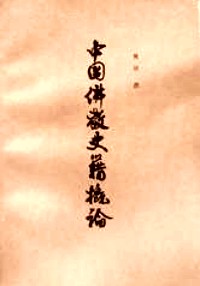 陳垣 撰
中国佛教史籍概论